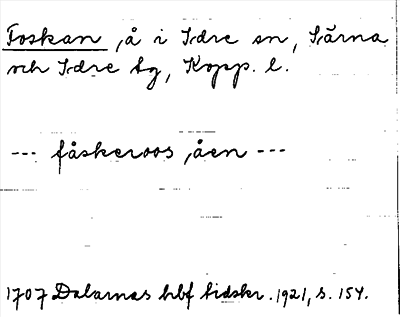 Foskan, å i Idre sn, Särna
och Idre tg, Kopp. l.
--- fåskeroos, åen ---
1707 Dalarnas hbf tidskr. 1921, s. 154.